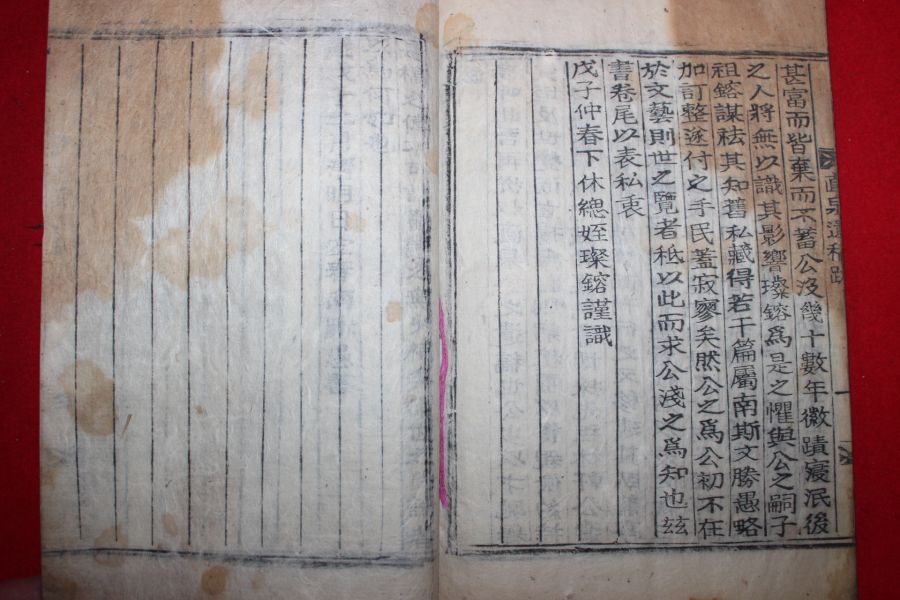 甚富而皆棄而不蓄公沒幾十數年徽蹟寢泯後
之人將無以識其影響璨鎔爲是之懼與公之嗣子
祖鎔謀祛其知舊私藏得若干篇屬南斯文勝愚略
加訂整遂付之手民蓋寂寥矣然公之爲公初不在
於文藝則世之覽者秪以此而求公淺之爲知也玆
書卷尾以表私衷
戊子仲春下休總姪璨鎔謹識
直泉遺稿跋
一